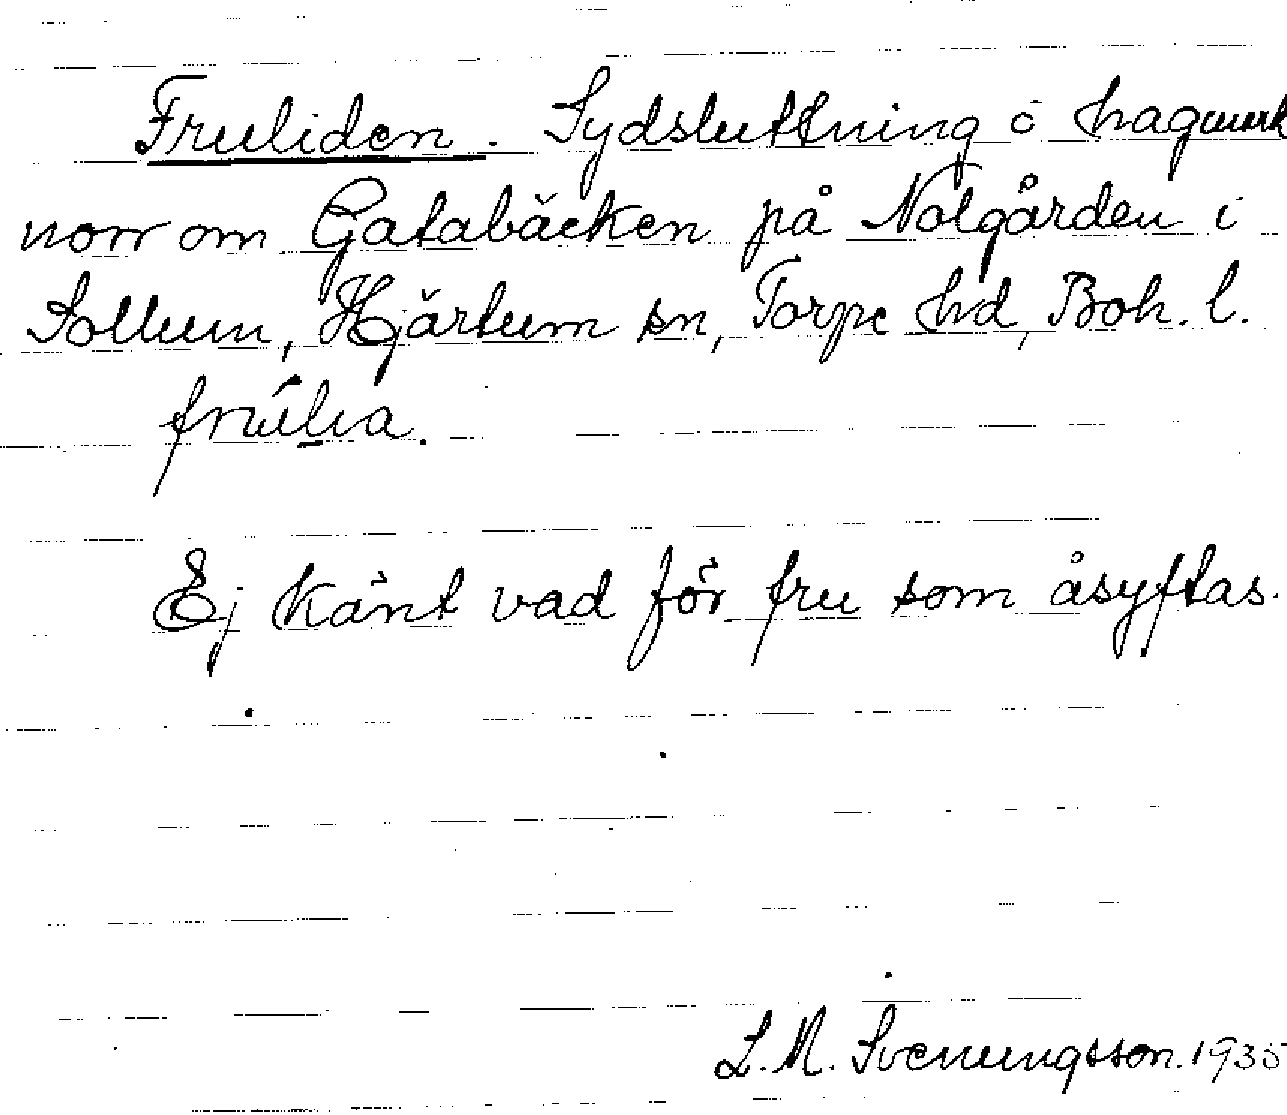 Fruliden. Sydsluttning o hagmark
norr om Gatabäcken på Nolgården i
Sollum, Hjärtum sn, Torpe hd, Boh. l.
frúlia.
Ej känt vad för fru som åsyftas.
L. M. Svenungsson. 1935